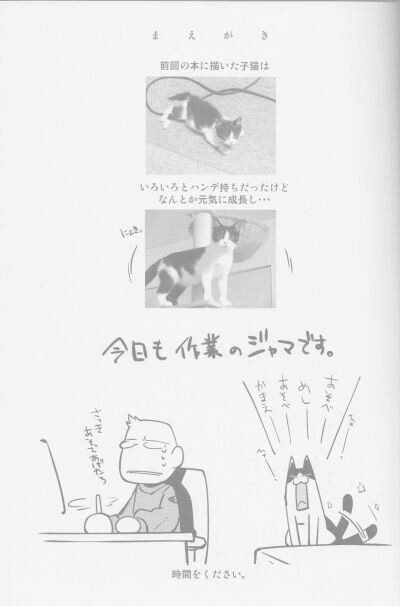 まえがき
前回の本に描いた子猫は
いろいろとハンデ持ちだったけど
なんとか元気に成長し・・・
にょき
今日も作業のジャマです。
あそべ
めし
あそべ
かまえ
さっき
あそんであげたろ
時間をください。